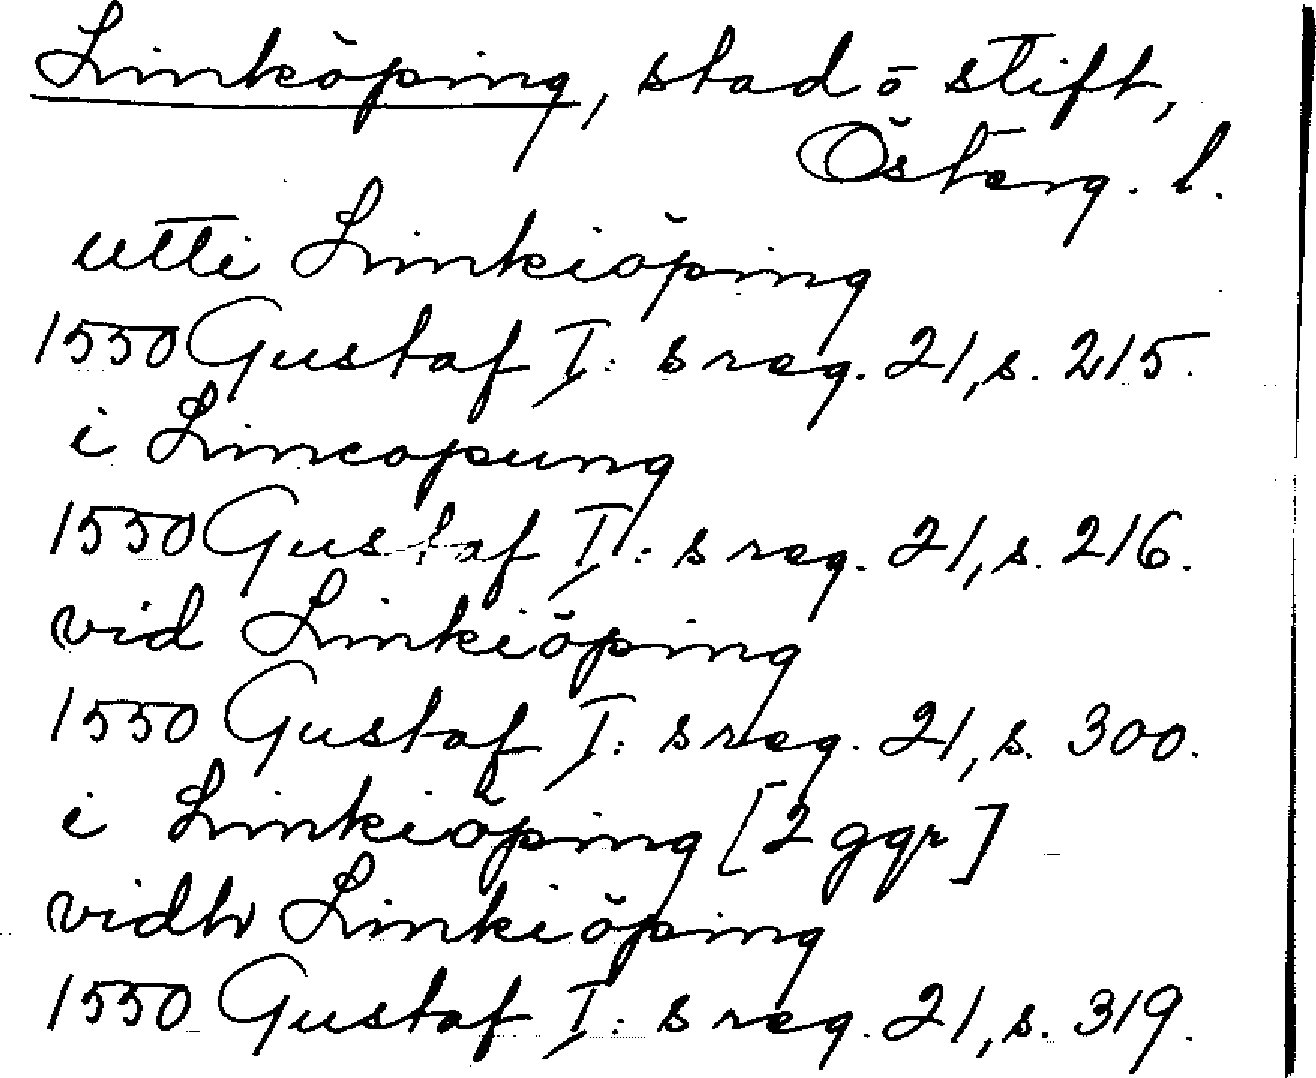 Linköping, stad o stift,
Österg. l.
utti Linkiöping
1550 Gustaf I: s reg. 21, s. 215.
i Lincopung
1550 Gustaf I: s reg. 21, s. 216.
vid Linkiöping
1550 Gustaf I: s reg. 21, s. 300.
i Linkiöping [2 ggr]
vidh Linkiöping
1550 Gustaf I: s reg. 21, s. 319.